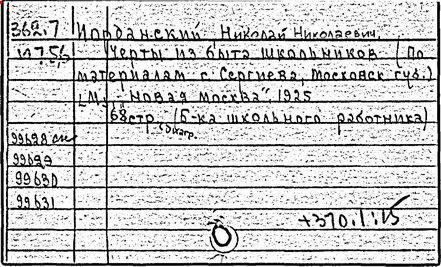 362.7 Иорданский, Николай Николаевич.
Черты из быта школьников (По
материалам г. Сергиева, Московск губ.)
[М.] "Новая Москва", 1925
68 стр. (Б-ка школьного работника)
99628
99629
99630
99631
+370.1:15